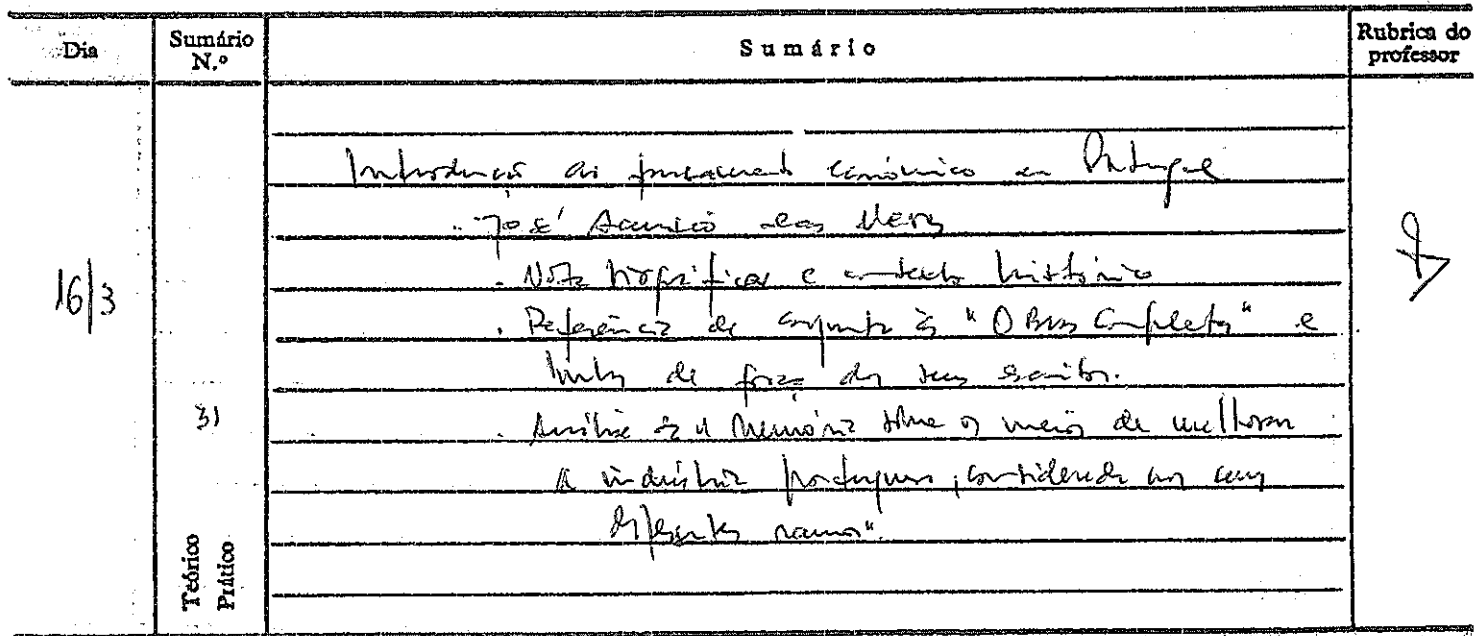 Dia
Sumário N.º
Sumário
Rubrica do professor
Introdução ao pensamento económico em Portugal
. José Acúrsio das Neves
. Nota biográfica e contexto histórico
16/3
. Referência de conjunto às "Obras Completas" e
linhas de força dos seus escritos.
31
. Análise da "Memória sobre os meios de melhorar
a indústria portuguesa, considerada nos seus
diferentes ramos".
Teórico
Prático